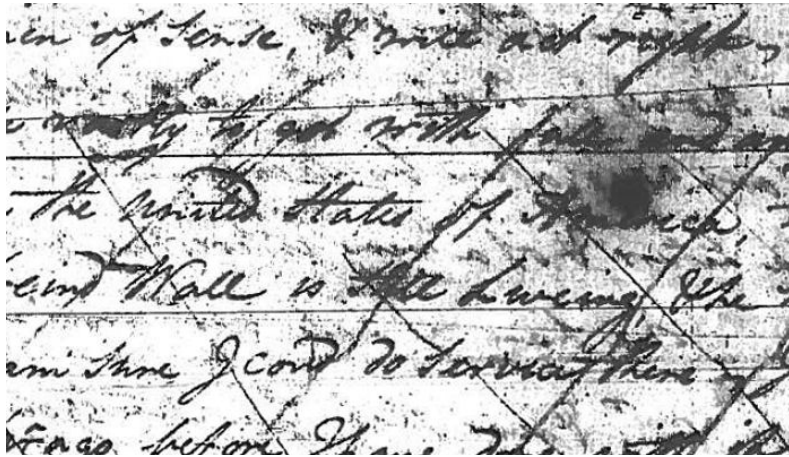 of Sense, & nice act right,
ready to act with
the United States of America,
Wall is still Liveing, & the
am Sure I cou'd do Service there
ago before I have done with it